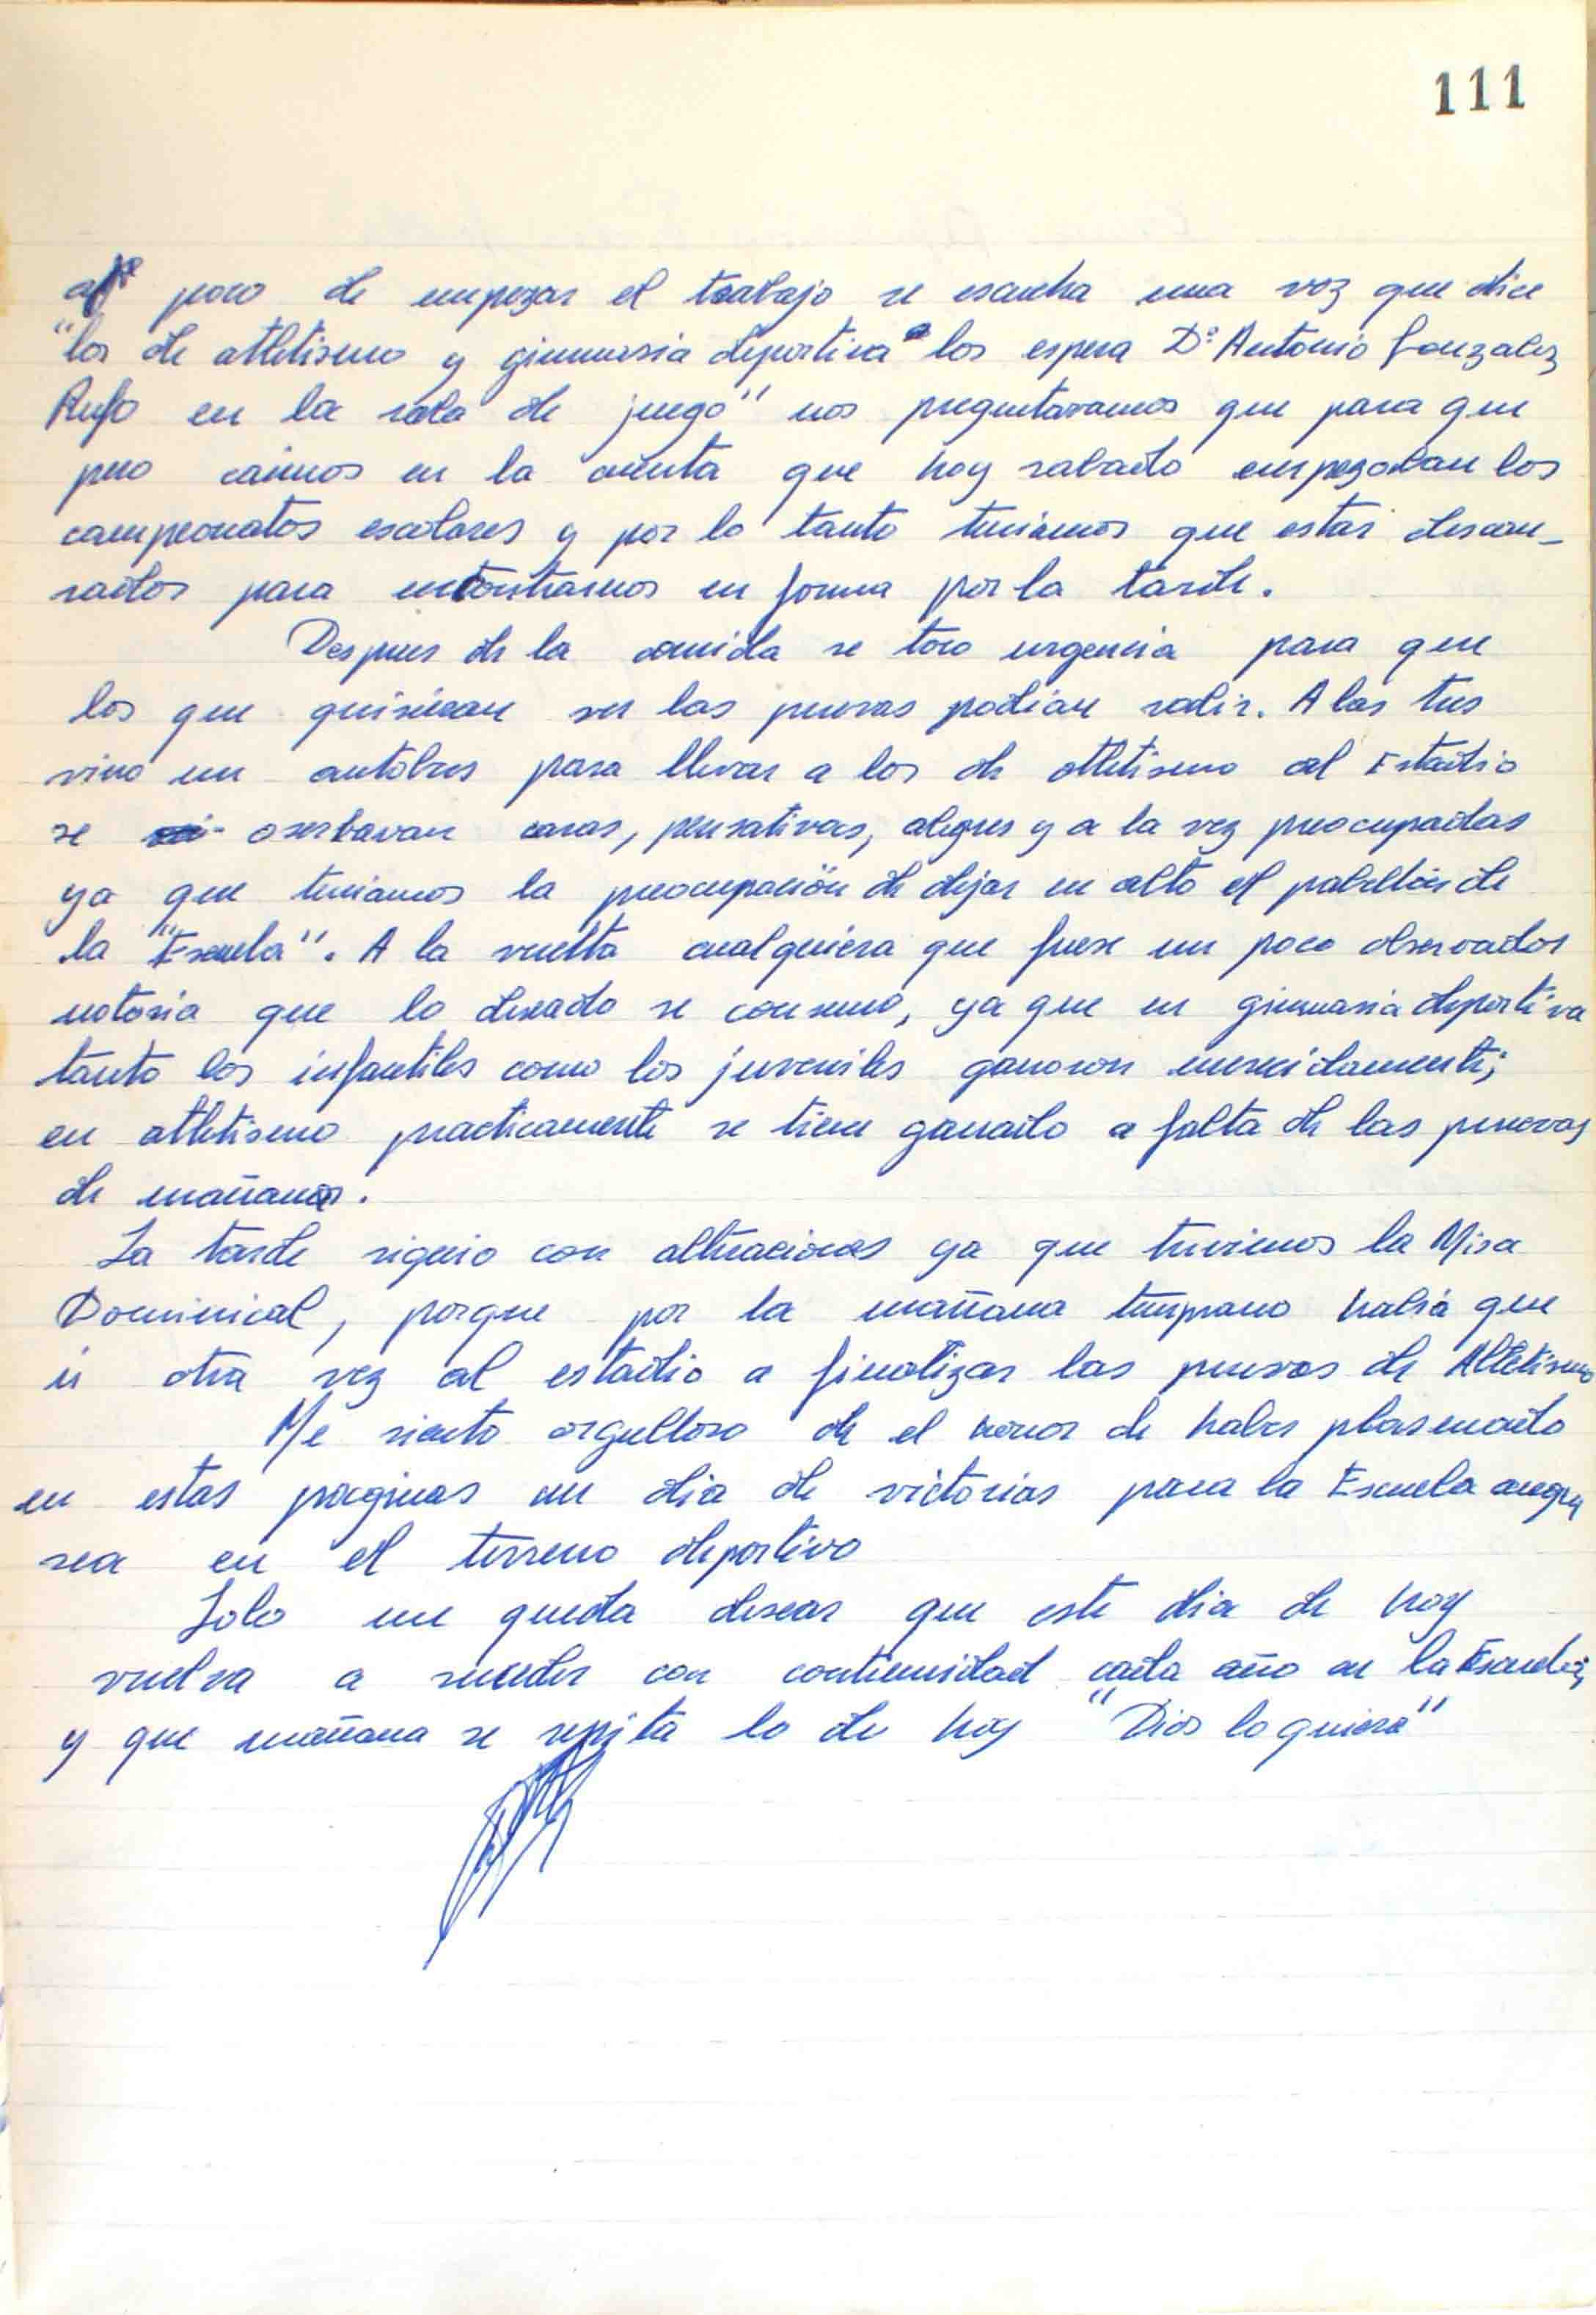 111
al poco de empezar el trabajo se escucha una voz que dice
"los de athletismo y gimnasia deportiva los espera Dº Antonio Gonzalez
Rufo en la sala de juego" nos preguntavamos que para que
pero caimos en la cuenta que hoy sabado empezaban los
campeonatos escolares y por lo tanto teniamos que estar descan-
sados para encontrarnos en forma por la tarde.
Despues de la comida se toco urgencia para que
los que quisieran ver las pruevas podian salir. A las tres
vino un autobus para llevar a los de athletismo al Estadio
se oserbavan caras, pensativas, alegres y a la vez preocupadas
ya que teniamos la preocupación de dejar en alto el pabellon de
la "Escuela". A la vuelta cualquiera que fuese un poco observador
notaria que lo deseado se consumo, ya que en gimnasia deportiva
tanto los infantiles como los juveniles ganaron merecidamente;
en athletismo practicamente se tiene ganado a falta de las pruevas
de mañana.
La tarde siguio con altenaciones ya que tuvimos la Misa
Dominical, porque por la mañana temprano habia que
ir otra vez al estadio a finalizar las pruevas de Athletismo
Me siento orgulloso de el honor de haber plasmado
en estas paginas un dia de victorias para la Escuela aunque
sea en el terreno deportivo
Solo me queda desear que este dia de hoy
vuelva a suceder con continuidad cada año en la Escuela,
y que mañana se repita lo de hoy "Dios lo quiera"